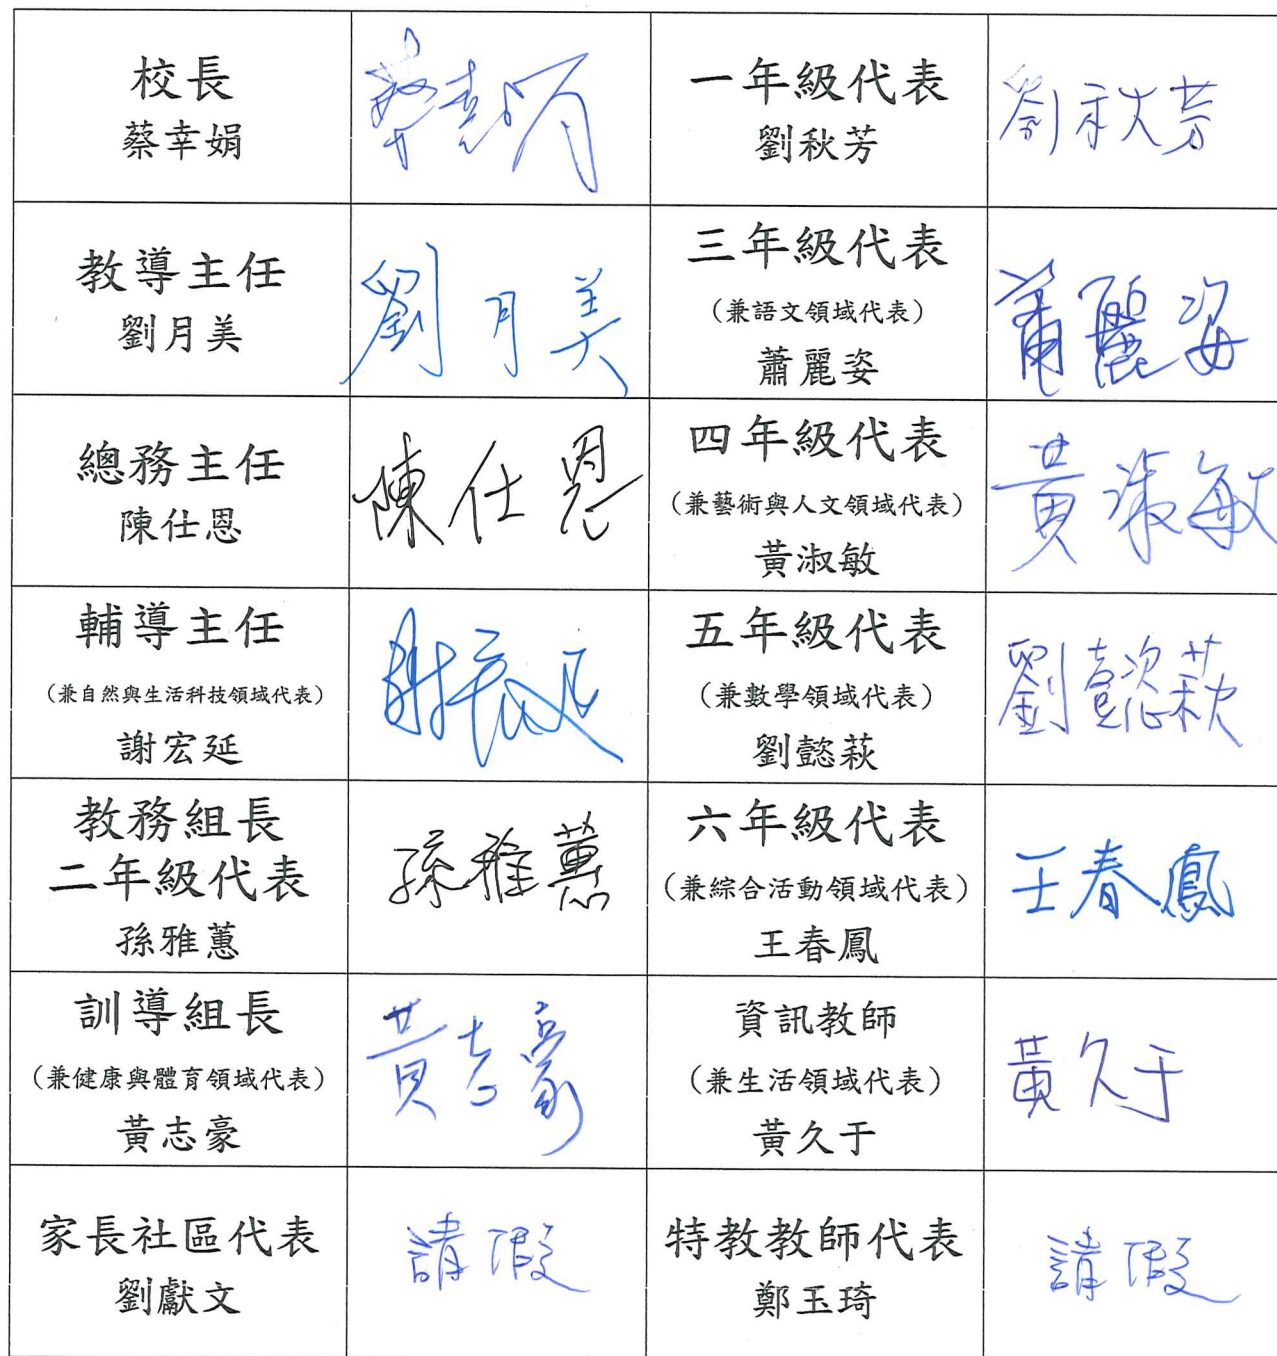 校長
蔡幸娟
蔡幸娟
一年級代表
劉秋芳
劉秋芳
教導主任
劉月美
劉月美
三年級代表
(兼語文領域代表)
蕭麗姿
蕭麗姿
總務主任
陳仕恩
陳仕恩
四年級代表
(兼藝術與人文領域代表)
黃淑敏
黃淑敏
輔導主任
(兼自然與生活科技領域代表)
謝宏延
謝宏延
五年級代表
(兼數學領域代表)
劉懿萩
劉懿萩
教務組長
二年級代表
孫雅蕙
孫雅蕙
六年級代表
(兼綜合活動領域代表)
王春鳳
王春鳳
訓導組長
(兼健康與體育領域代表)
黃志豪
黃志豪
資訊教師
(兼生活領域代表)
黃久于
黃久于
家長社區代表
劉獻文
請假
特教教師代表
鄭玉琦
請假